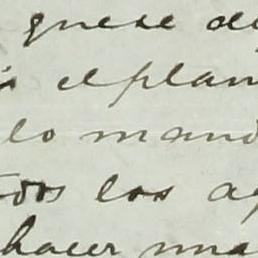 quese de
el plan
lo mand
todos los a
hacer una